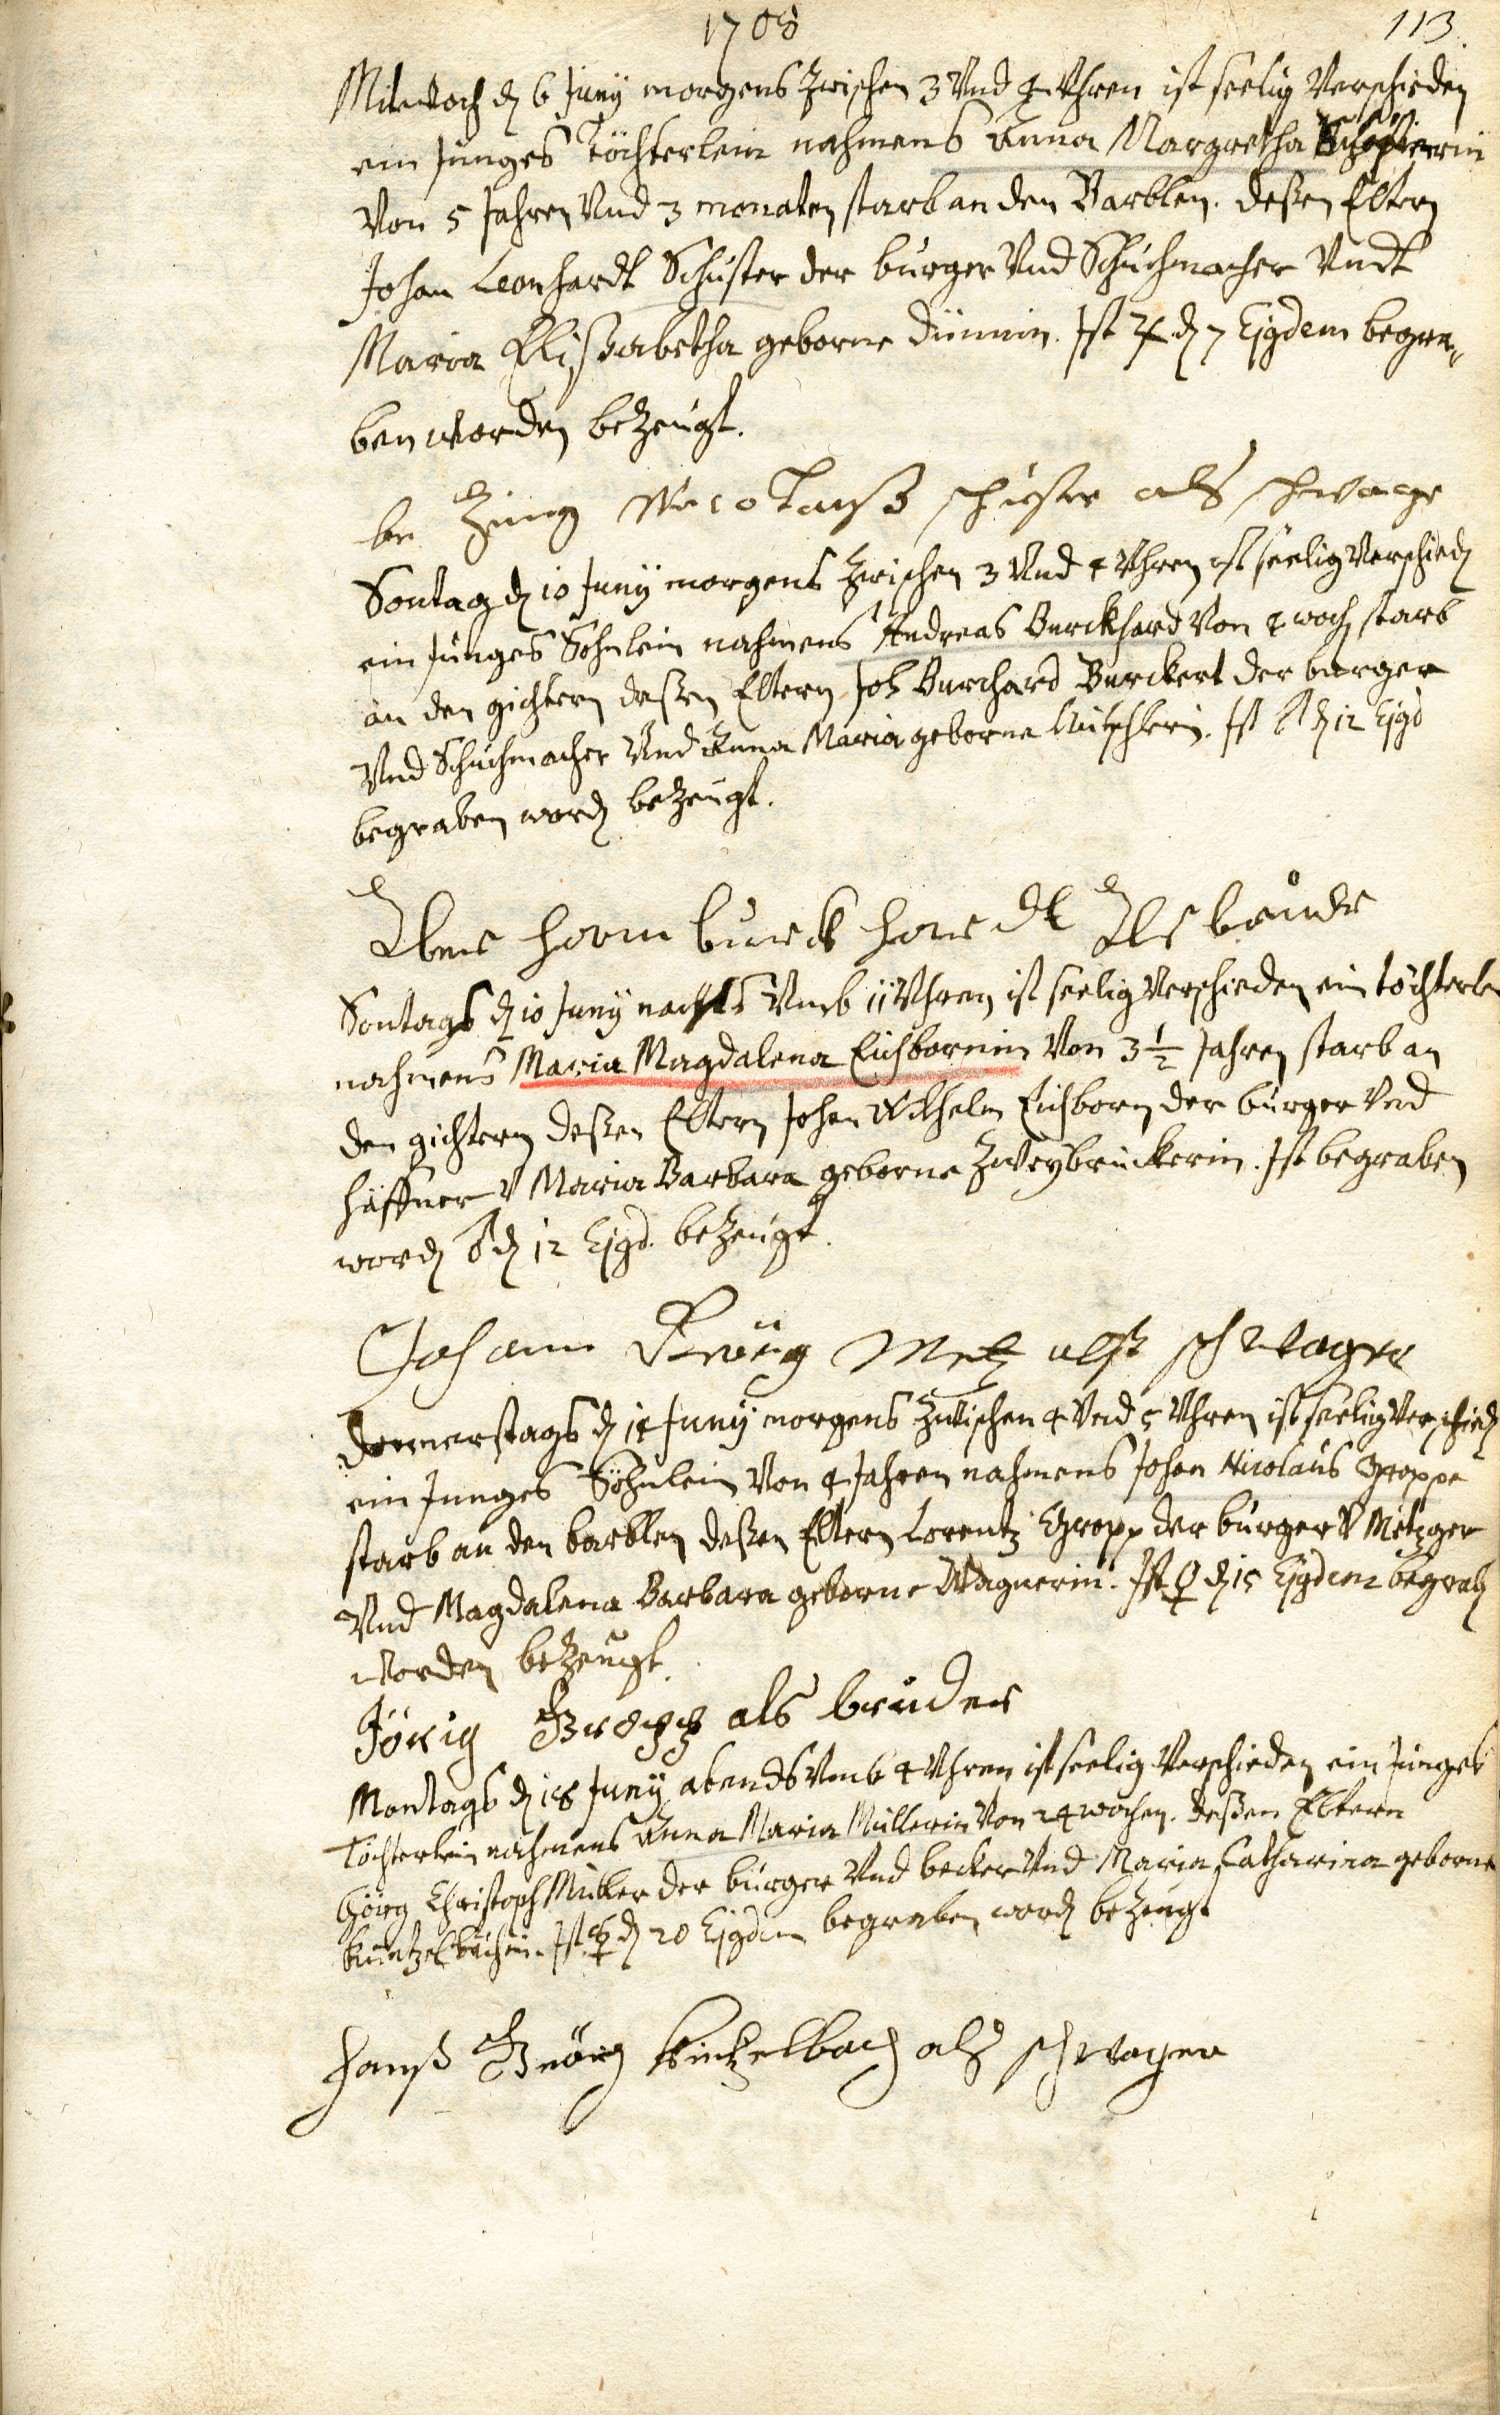 1708
113.
Mitwoch dh 6 Juny morgens zwischen 3 Vnd 4 Vhren ist seelig Verschieden
ein Junges Töchterlein nahmens Anna Margretha
Von 5 Jahren Vnd 3 monaten starb an den Barblen. deßen Eltern
Johan Leonhardt Schuster der burger Vnd Schuhmacher Vndt
Maria Elisabetha geborne Dümmin. Ist ♃ dh 7 Ejgdem begra-
ben worden bezeugt.
schuster als schwager
Sontag dh 10 Juny morgens zwischen 3 Vnd 4 Vhren ist seelig Verschiedh
ein Junges Sohnlein nahmens Andreas Burckhard Von 4 woch starb
an den gichtern deßen Eltern Joh Burchard Burckert der burger
Vnd Schuhmacher Vnd Anna Maria geborne Ist ♂ dh 12 Ejgd
begraben wordh bezeugt.
als bruder
Sontags dh 10 Juny nachts Vmb 11 Vhren ist seelig Verschieden ein töchterle
nahmens Maria Magdalena Eichbornin Von 3 1/2 Jahren starb an
den gichtern deßen Eltern Johan Wilhelm Eichborn der burger Vnd
häffner V Maria Barbara geborne Zweybrückerin. Ist begraben
wordh ♂ dh 12 Ejgd. bezeugt.
Johann Metz alß schwager
donnerstags dh 14 Juny morgens zwischen 4 Vnd 5 Vhren ist seelig Verschiedh
ein Junges Söhnlein Von 4 Jahren nahmens Johan Nicolaus Groppe
starb an den barblen deßen Eltern Lorentz Gropp der burger V Metzger
Vnd Magdalena Barbara geborne Wagnerin. Ist ♀ dh 15 Ejgdem begrabh
worden bezeugt.
Görig als bruder
Montags dh 18 Juny abends Vmb 4 Vhren ist seelig Verschieden ein Junges
Töchterlein nahmens Anna Maria Müllerin Von 24 wochen. deßen Eltern
Görg Christoph Müller der burger Vnd becker Vnd Maria Catharina geborne
Kintzelbachin. Ist ☿ dh 20 Ejgdem begraben wordh bezeugt
Hanß Geörg Kintzelbach alß schwager